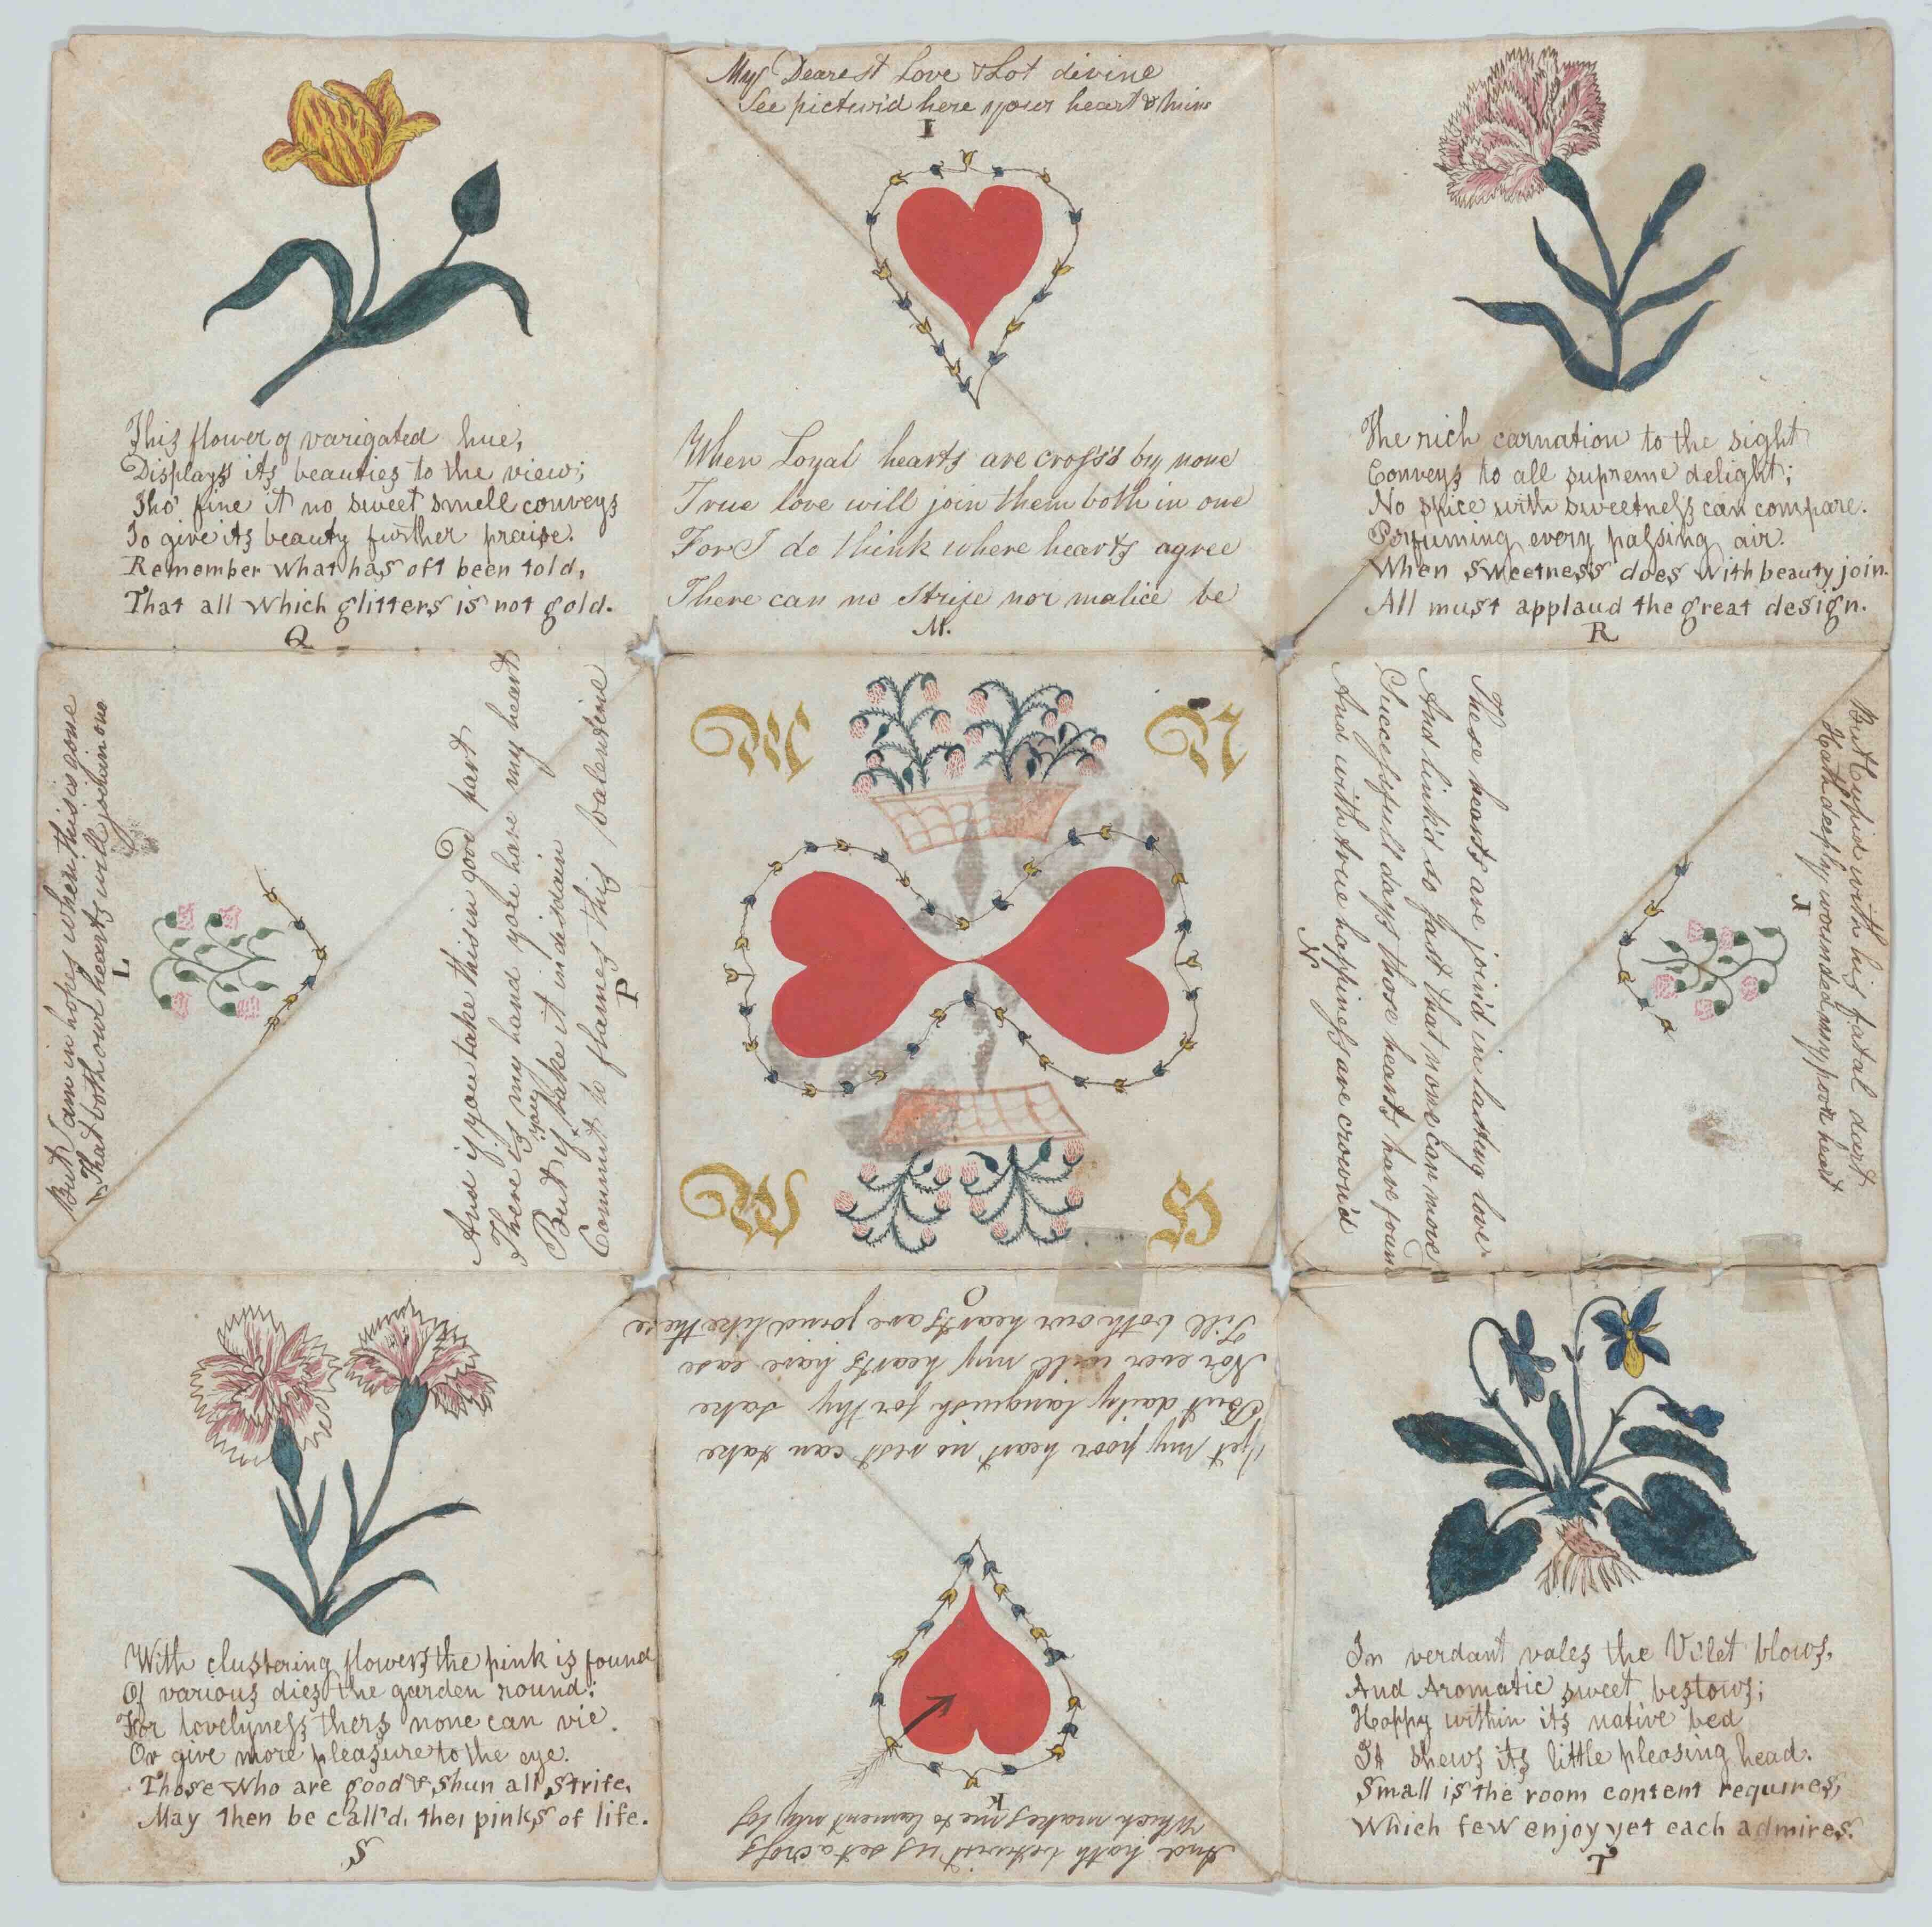 This flower of varigated hue,
Displays its beauties to the view;
Tho' fine it no sweet smell conveys
To give its beauty further praise.
Remember what has oft been told,
That all which glitters is not gold.
Q
My Dearest Love & Lot divine
See pictur'd here your heart & mine
I
When Loyal hearts are cross'd by none
True love will join them both in one
For I do think where hearts agree
There can no strife nor malice be
M.
The rich carnation to the sight
Conveys to all supreme delight;
No spice with sweetness can compare.
Perfuming every passing air.
When sweetness does with beauty join.
All must applaud the great design.
R
But I am in hopes when this is gone
That both our hearts will join in one
L
And if you take this in good part
There is my hand you have my heart
But if you take it in disdain
Commit to flames this valentine
P
M
N
W
H
These hearts are join'd in lasting love
And link'd so fast that none can move
Successfull days those hearts have foun
And with true happiness are crown'd
N
But Cupid with his fatal dart
Hath deeply wounded my poor heart
J
With clustering flowers the pink is found
Of various dies the garden round:
For lovelyness thers none can vie.
Or give more pleasure to the eye.
Those who are good & shun all strife,
May then be call'd, the pinks of life.
S
Yet my poor heart no rest can take
But daily languish for thy sake
Nor ever will my hearts have ease
Till both our hearts are joind like these
O
And hath betwixt us set a cross
Which makes me to lament my los
K
In verdant vales the Vilet blows,
And Aromatic sweet bestows;
Happy within its native bed
It shews its little pleasing head.
Small is the room content requires,
Which few enjoy yet each admires.
T